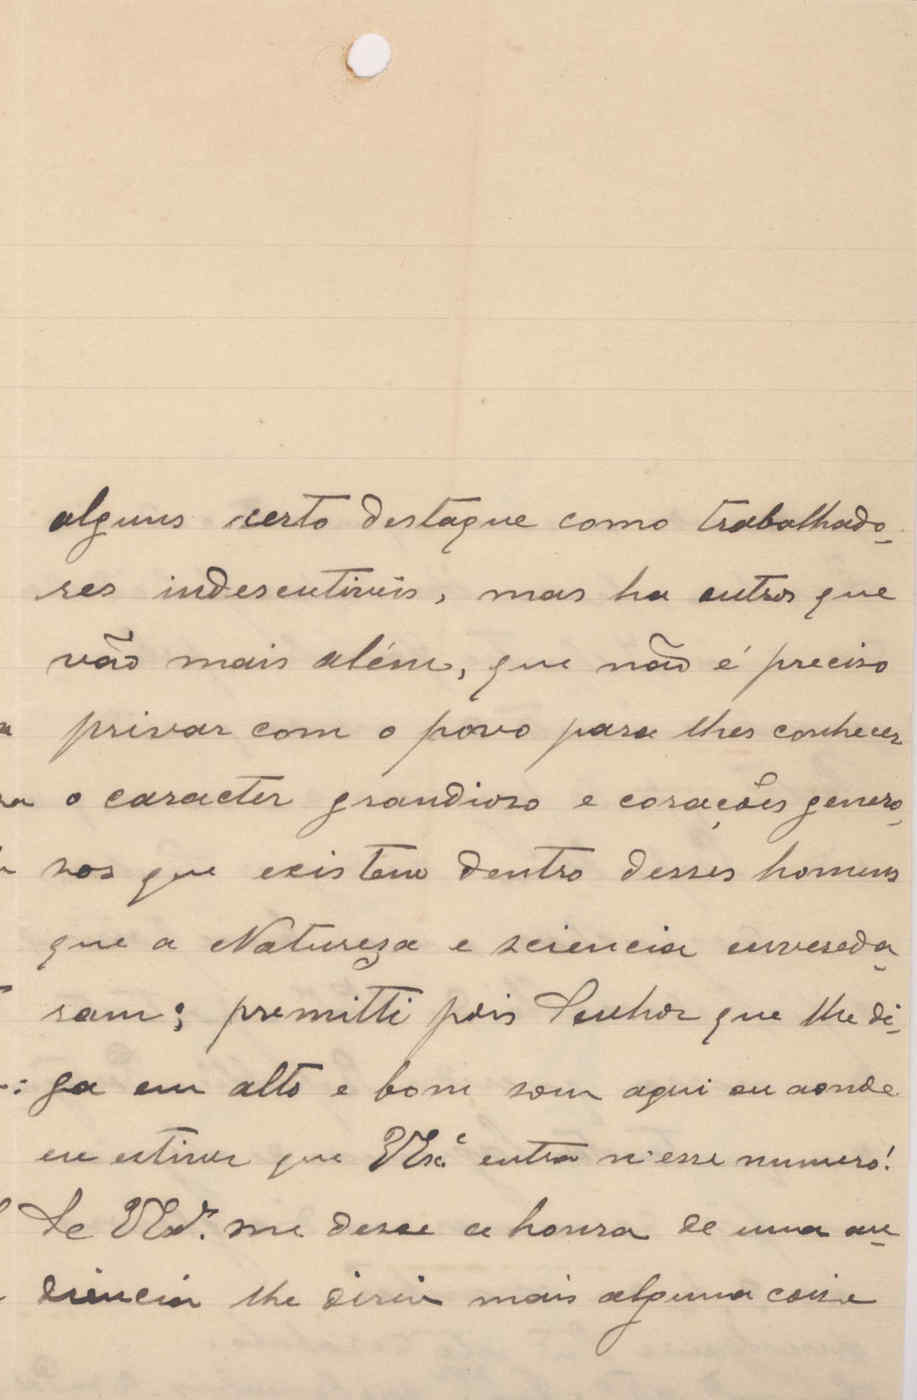 alguns certo destaque como trabalhado-
res indescutiveis, mas ha outros que
vão mais além, que não é preciso
privar com o povo para lhes conhecer
o caracter grandioso e corações genero-
sos que existem dentro desses homens
que a Natureza e sciencia enverada-
ram; premitti pois Senhor que lhe di-
ga em alto e bom som aqui ou aonde
eu estiver que VExª entra n'esse numero!
Se VExª. me desse a honra de uma au-
diencia lhe diria mais alguma coisa